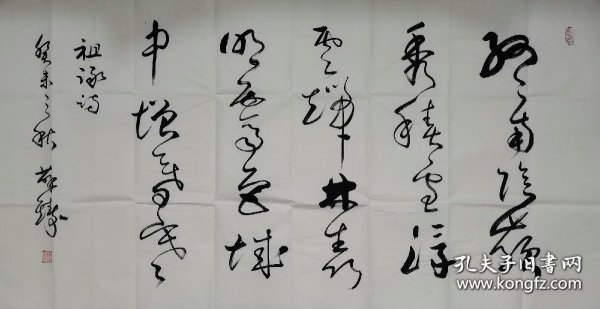 終南陰嶺
秀積雪浮
雲端林表
明霽色城
中增暮寒
祖詠詩
癸未之秋
孔夫子旧书网
www.kongfz.com